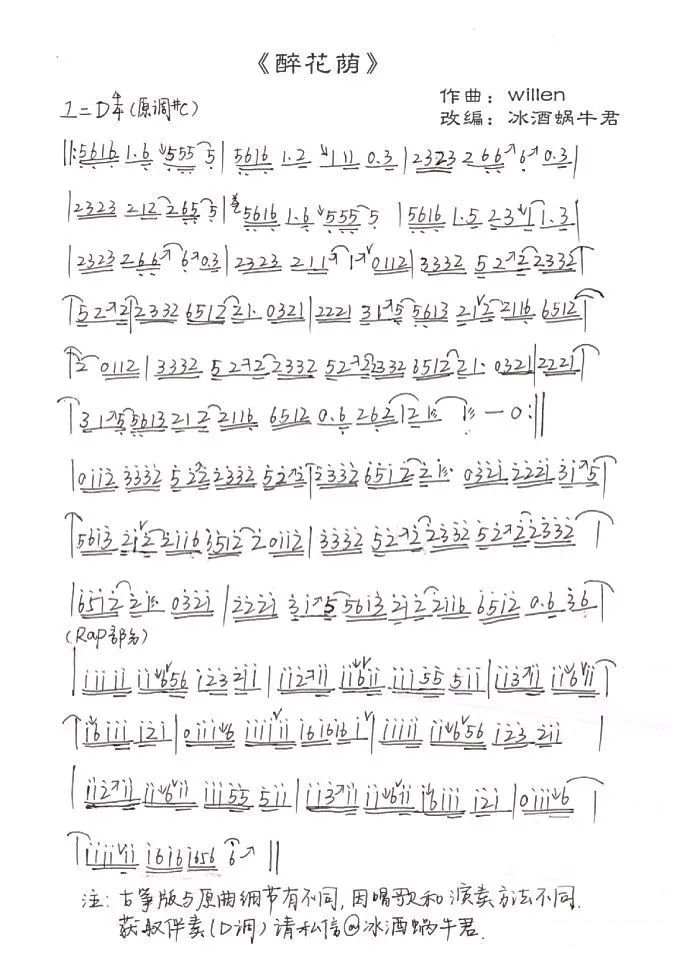 《醉花荫》
作曲：willen
1=D 4/4 (原调#C)
改编：冰酒蜗牛君
‖: 5616 1.6 555 5 | 5616 1.2 111 0.3 | 2323 2 66 6 0.3 |
| 2323 212 2655 | 5616 1.6 555 5 | 5616 1.5 2311.3 |
| 2323 266 6 0.3 | 2323 211 1 0112 | 3332 5 2 2 2332 |
| 5 2 2 | 2332 6512 21. 0321 | 2221 31 5 5613 212 2116 6512 |
2 0112 | 3332 5 2 2 2332 5 2 2 2332 6512 21. 0321 | 2221 |
| 31 5 5613 212 2116 6512 0.6 262 | 2 1 1 — 0 :‖
| 0112 3332 5 22 2332 5 2 2 | 2332 6512 21 0321 2221 31 5 |
5613 212 2116 3512 2 0112 | 3332 5 2 2 2332 5 2 2 2332 |
| 6512 21 0321 | 2221 31 5 5613 212 2116 6512 0.6 36 |
(Rap部分)
| 11111 11656 123 211 | 112 11 11611 11155 511 | 113 11 11611 |
16111 121 | 01116 111111 16161 1 | 11111 11656 123 211 |
| 112 11 11611 11155 511 | 113 11 11611 16111 121 | 01116 |
111111 1616 1656 6 ‖
注：古筝版与原曲细节有不同，因唱歌和演奏方法不同.
获取伴奏(D调)请私信@冰酒蜗牛君.